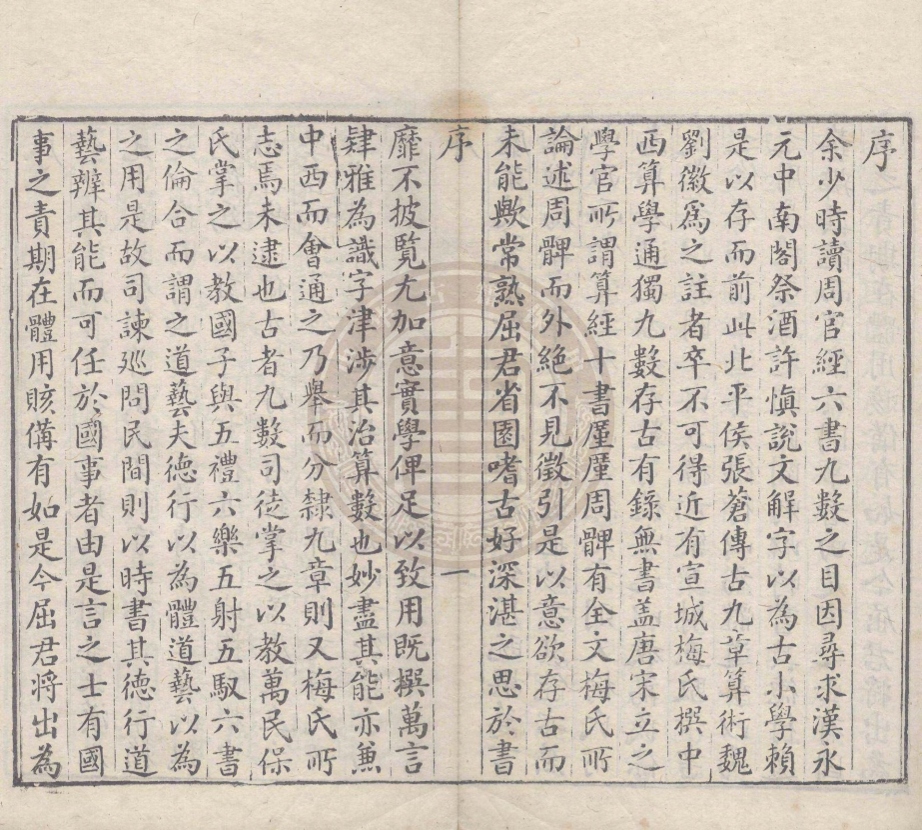 序
余少時讀周官經六書九數之目因尋求漢永
元中南閣祭酒許慎說文解字以為古小學賴
是以存而前此北平侯張蒼傳古九章算術魏
劉徽為之註者卒不可得近有宣城梅氏撰中
西算學通獨九數存古有錄無書蓋唐宋立之
學官所謂算經十書厪厪周髀有全文梅氏所
論述周髀而外絶不見徵引是以意欲存古而
未能歟常熟屈君省園嗜古好深湛之思於書
序
一
靡不披覧尤加意實學俾足以致用既撰萬言
肄雅為識字津涉其治算數也妙盡其能亦兼
中西而會通之乃舉而分隸九章則又梅氏所
志焉未逮也古者九數司徒掌之以教萬民保
氏掌之以教國子與五禮六樂五射五馭六書
之倫合而謂之道藝夫德行以為體道藝以為
之用是故司諫廵問民間則以時書其德行道
藝辨其能而可任於國事者由是言之士有國
事之責期在體用賅備有如是今屈君将出為